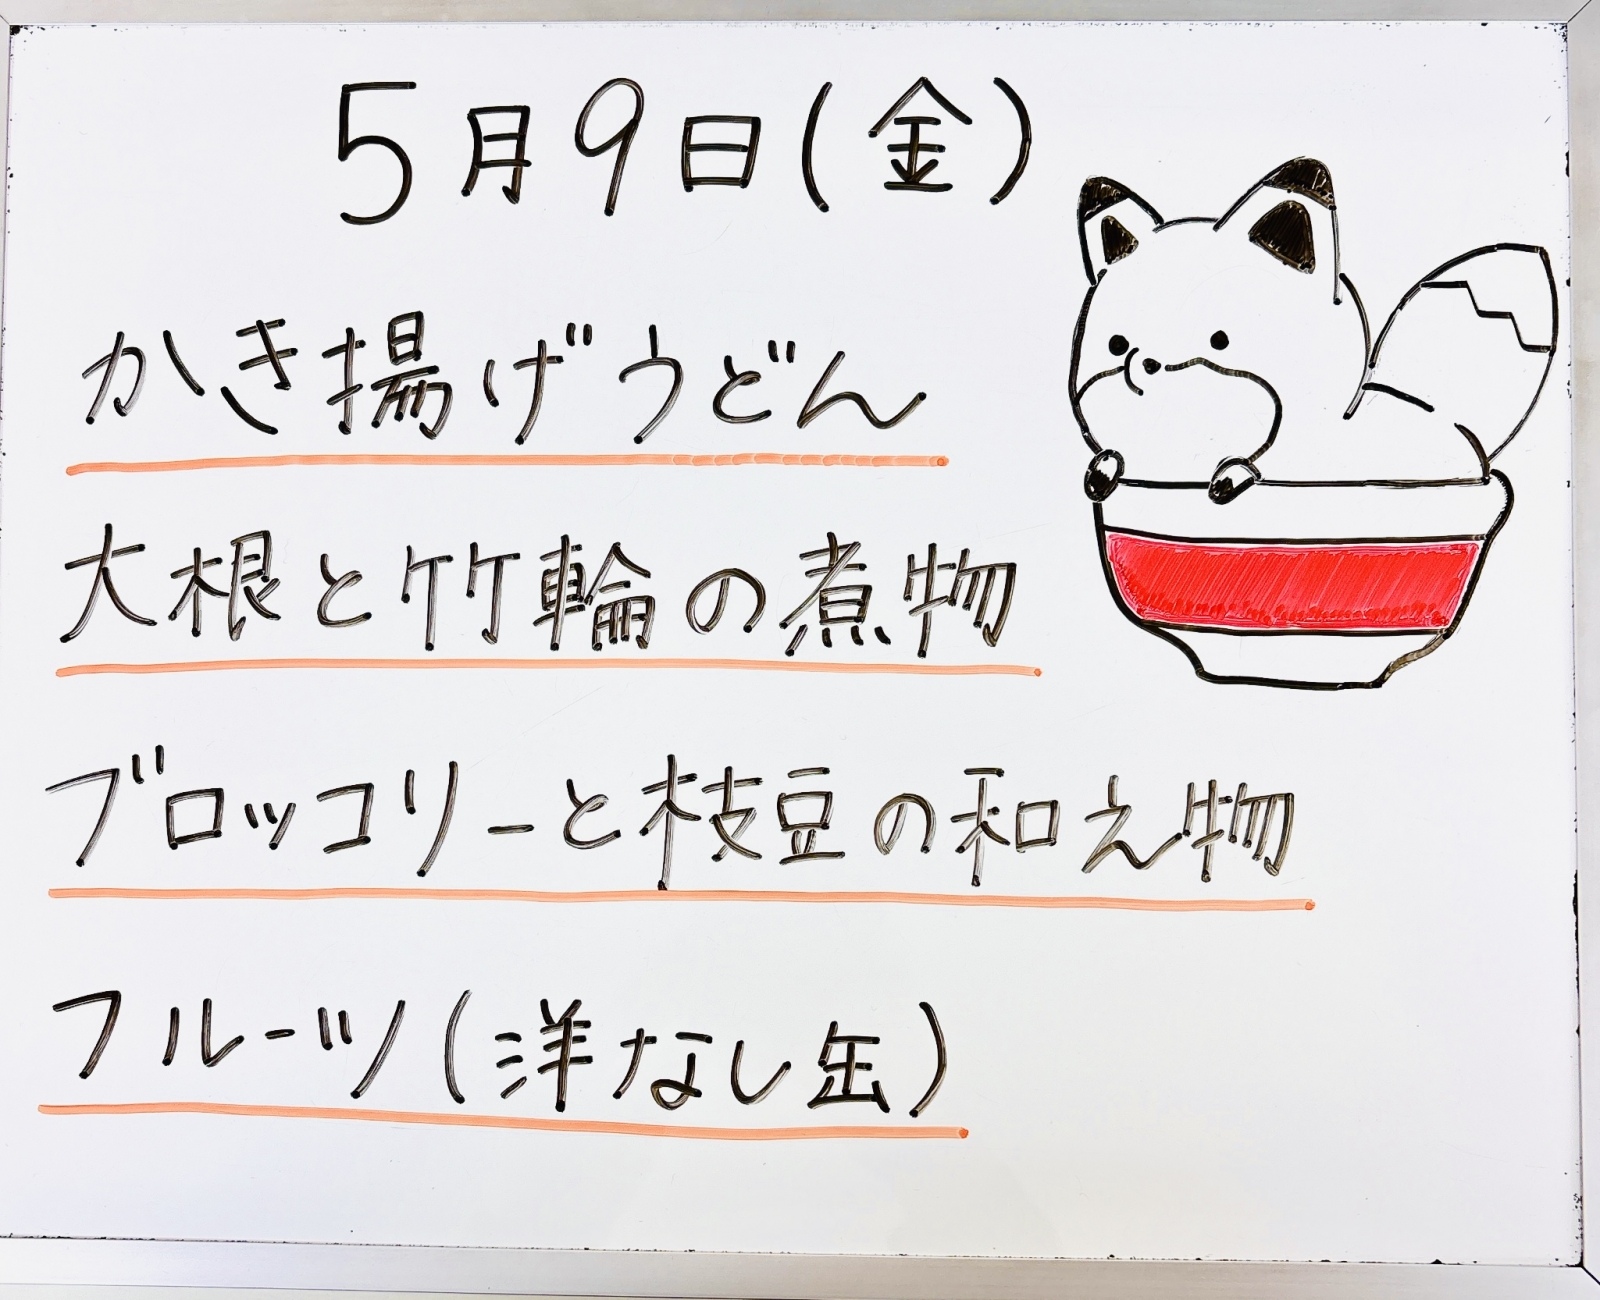 5月9日(金)
かき揚げうどん
大根と竹輪の煮物
ブロッコリーと枝豆の和え物
フルーツ(洋なし缶)